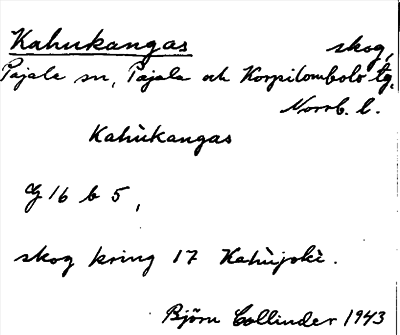 Kahukangas skog,
Pajala sn, Pajala och Korpilombolo tg,
Norrb. l.
Kahùkangas
G 16 b 5,
skog kring 17 Kahùjokì.
Björn Collinder 1943